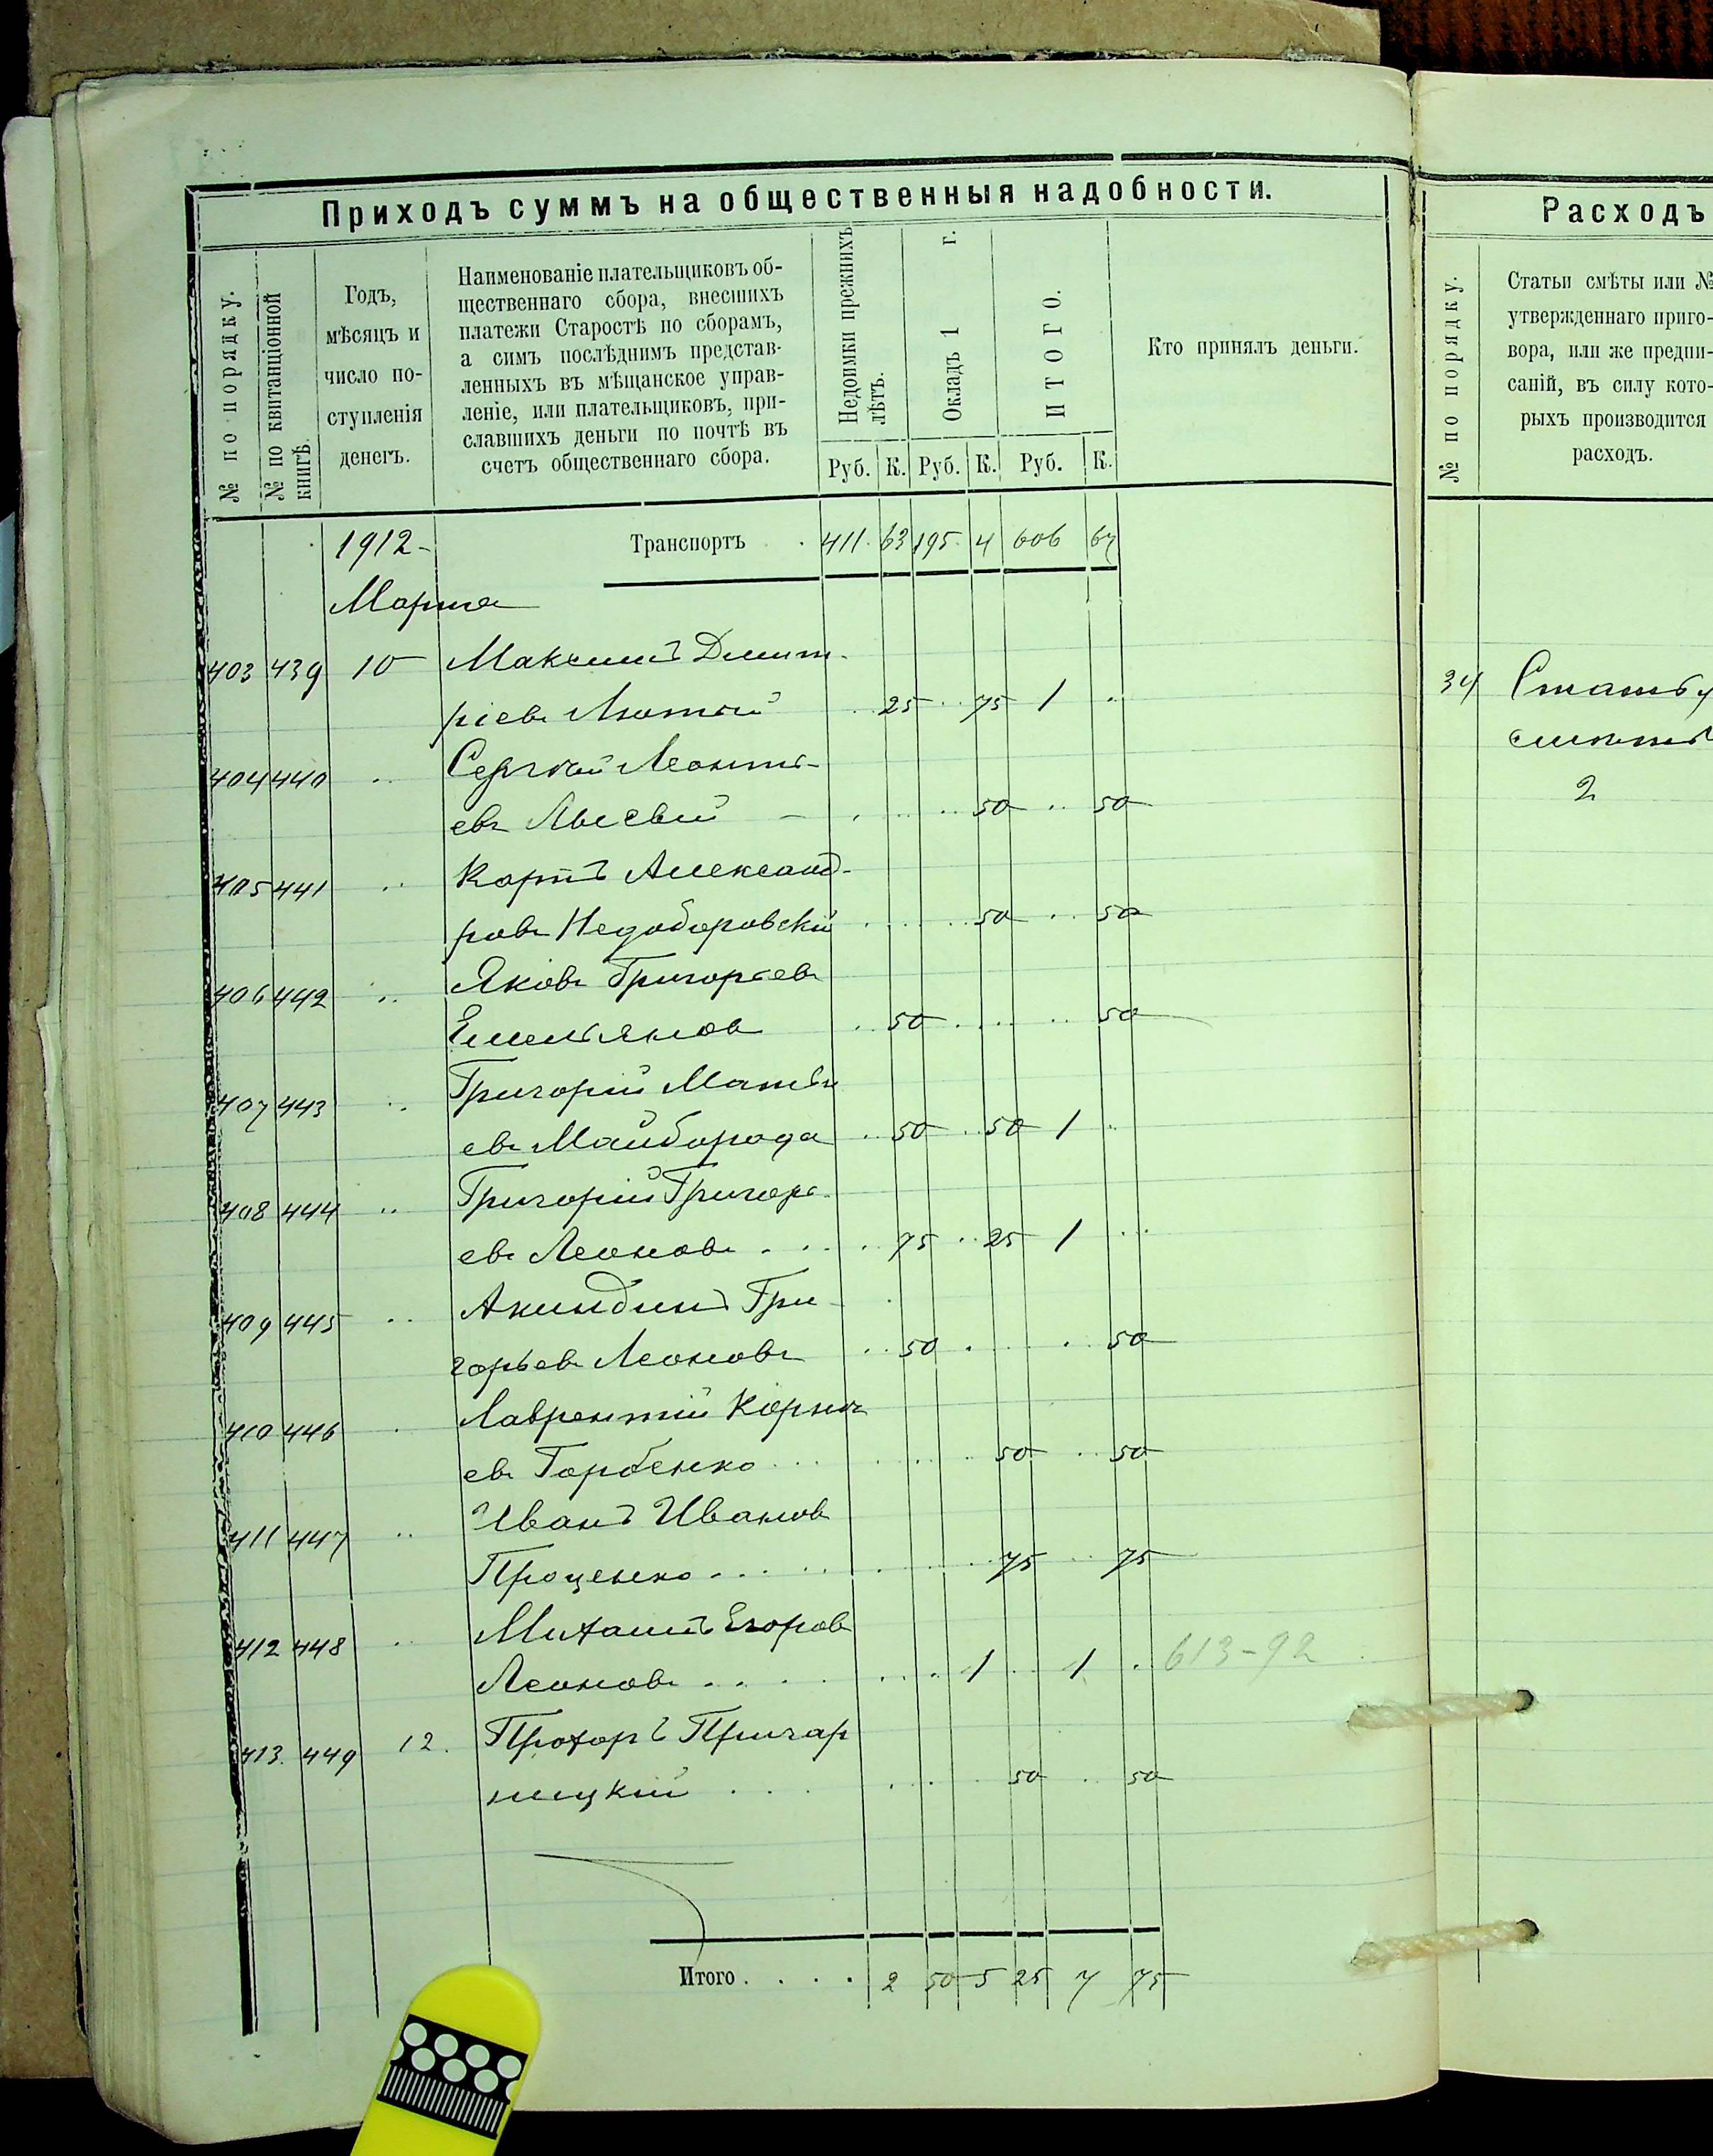 Приходъ суммъ на общественныя надобности.
№ по порядку.
№ по квитанціонной книгѣ.
Годъ,
мѣсяцъ и
число по-
ступленія
денегъ.
Наименованіе плательщиковъ об-
щественнаго сбора, внесшихъ
платежи Старостѣ по сборамъ,
а симъ послѣднимъ представ-
ленныхъ въ мѣщанское управ-
леніе, или плательщиковъ, при-
славшихъ деньги по почтѣ въ
счетъ общественнаго сбора.
Недоимки прежнихъ лѣтъ.
Окладъ 1 г.
ИТОГО.
Кто принялъ деньги.
Руб. К. Руб. К. Руб. К.
1912 - Транспортъ . 411 63 195 4 606 67
Марта
403 439 10 Максимъ Дмит-
ріевъ Лютый 25 75 1 ..
404 440 .. Сергѣй Леонть-
евъ 50 50
405 441 .. Карпъ Александ-
ровъ Недоборовскій 50 50
406 442 .. Яковъ Григорьевъ
Емельянов 50 50
407 443 .. Григорій Матвѣ
евъ Майборода 50 50 1 ..
408 444 .. Григорій Григорь-
евъ Леоновъ 75 25 1 ..
409 445 .. Акиндинъ Гри-
горьевъ Леоновъ 50 50
410 446 . Лаврентій Корнѣ
евъ Горбенко 50 50
411 447 .. Иванъ Иванов
Проценко 75 75
412 448 .. Михаилъ Егоров
Леоновъ 1 1 . 613-92
413. 449 12. Прохоръ Пригар
ницкій 50 50
Итого . . . . 2 50 5 25 7 75
Расходъ
№ по порядку.
Статьи смѣты или №
утвержденнаго приго-
вора, или же предпи-
саній, въ силу кото-
рыхъ производится
расходъ.
34 Статья
смѣты
2